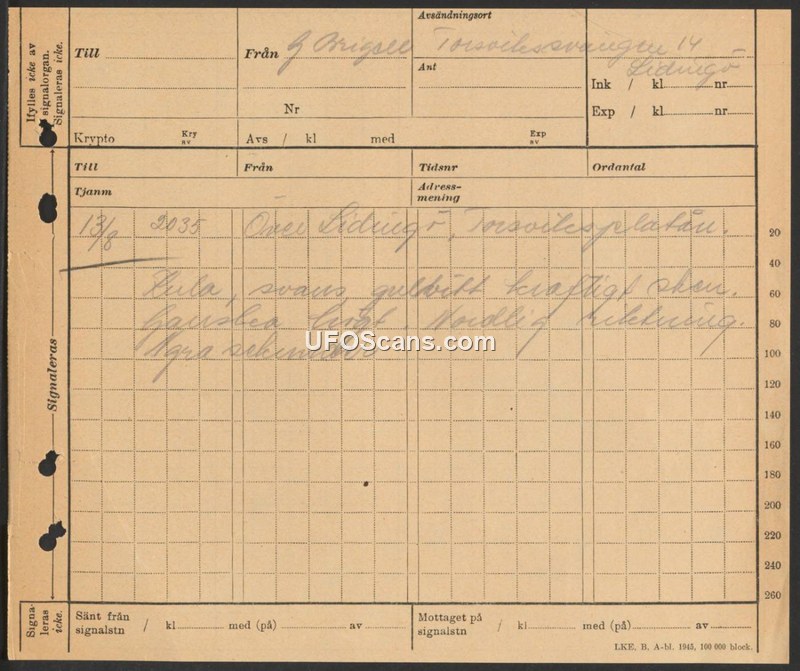 Ifylles icke av signalorgan. Signaleras icke.
Till
Från G
Avsändningsort
Torsviksvängen 14
Lidingö
Ant
Ink / kl nr
Nr
Exp / kl nr
Krypto Kry av
Avs / kl med Exp av
Till Från Tidsnr Ordantal
Tjanm Adress-mening
13/8 2035 Över Lidingö, Torsviksplatån.
Kula, svans, gulvitt kraftigt sken.
Ganska högt Nordlig riktning.
Några sekunder
20
40
60
80
100
120
140
160
180
200
220
240
260
Signaleras
UFOScans.com
Signa-leras icke.
Sänt från signalstn / kl med (på) av
Mottaget på signalstn / kl med (på) av
LKE. B. A-bl. 1945, 100 000 block.